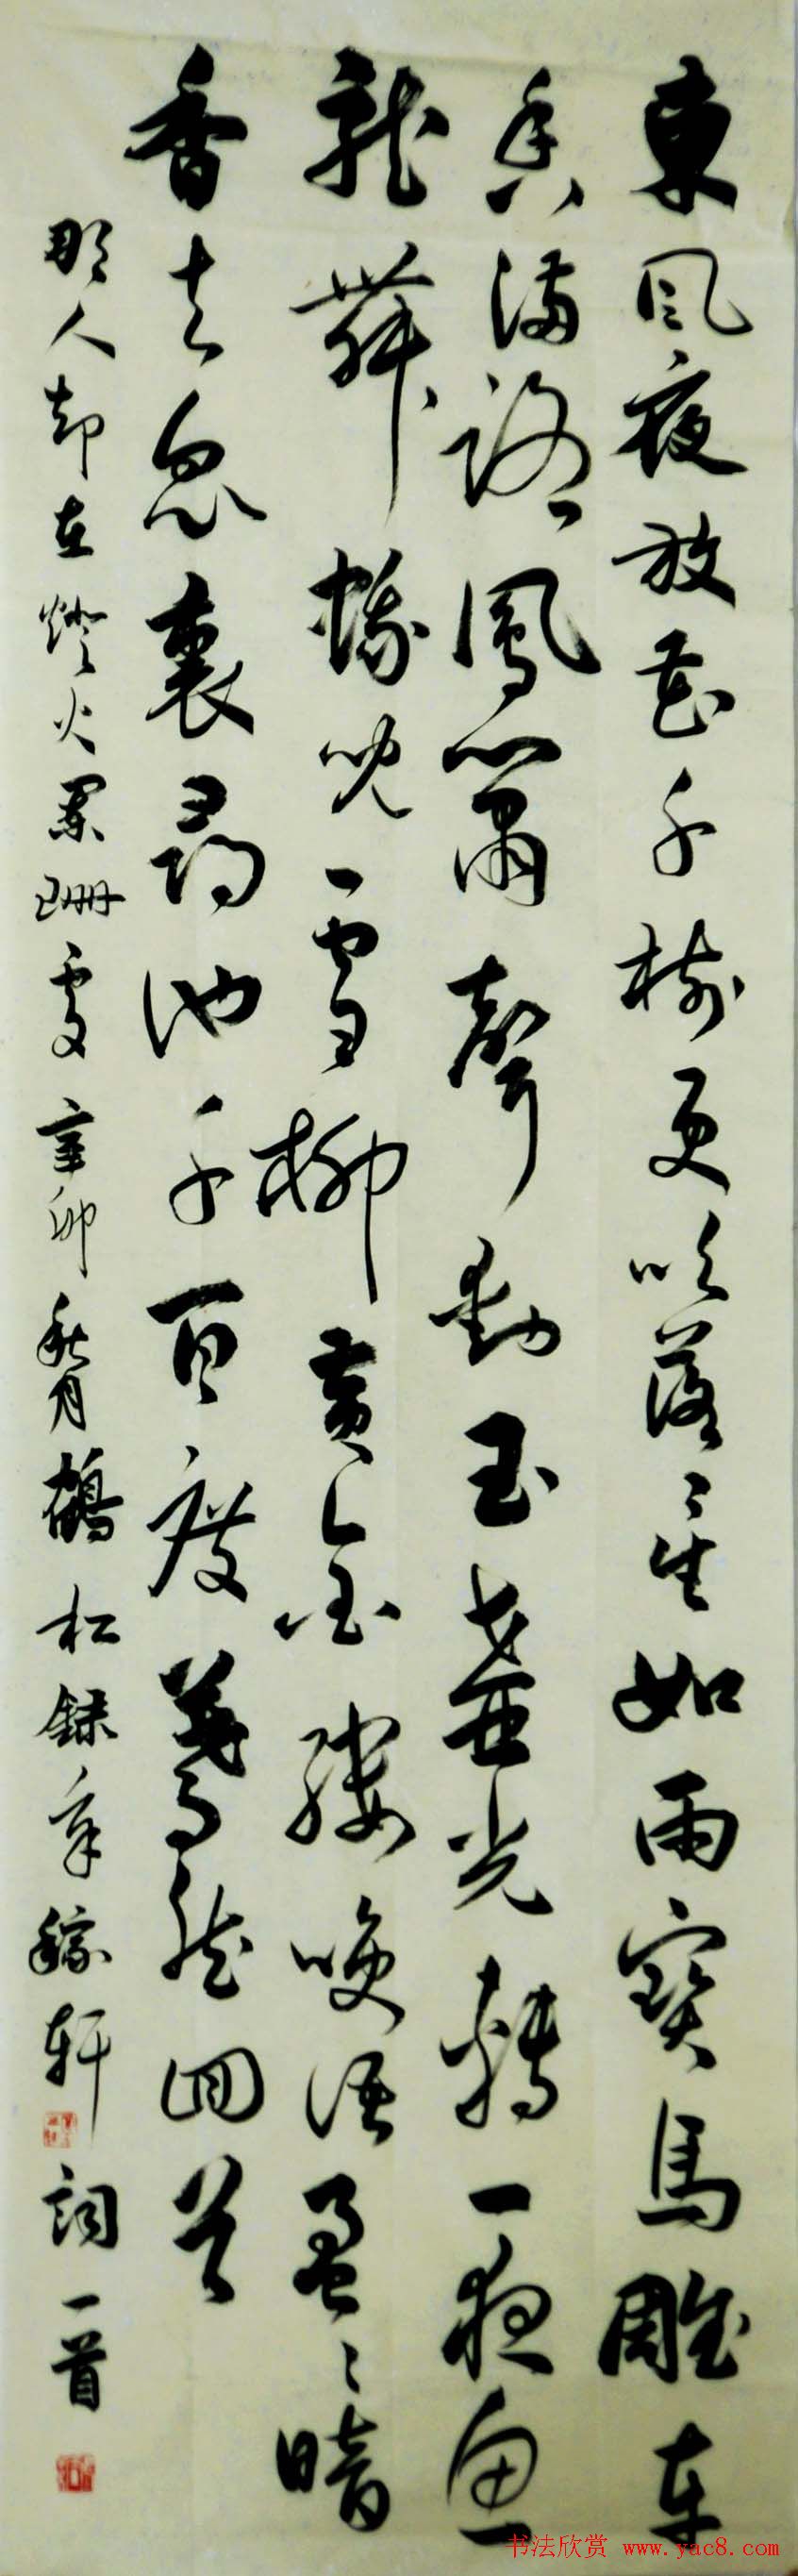 東風夜放花千樹更吹落星如雨寶馬雕車
香滿路鳳簫聲動玉壺光轉一夜魚
龍舞蛾兒雪柳黃金縷咲語盈〻暗
香去忽裏尋他千百度驀然回首
那人却在燈火闌珊處辛卯秋月鶴松録辛稼軒詞一首
书法欣赏 www.yac8.com